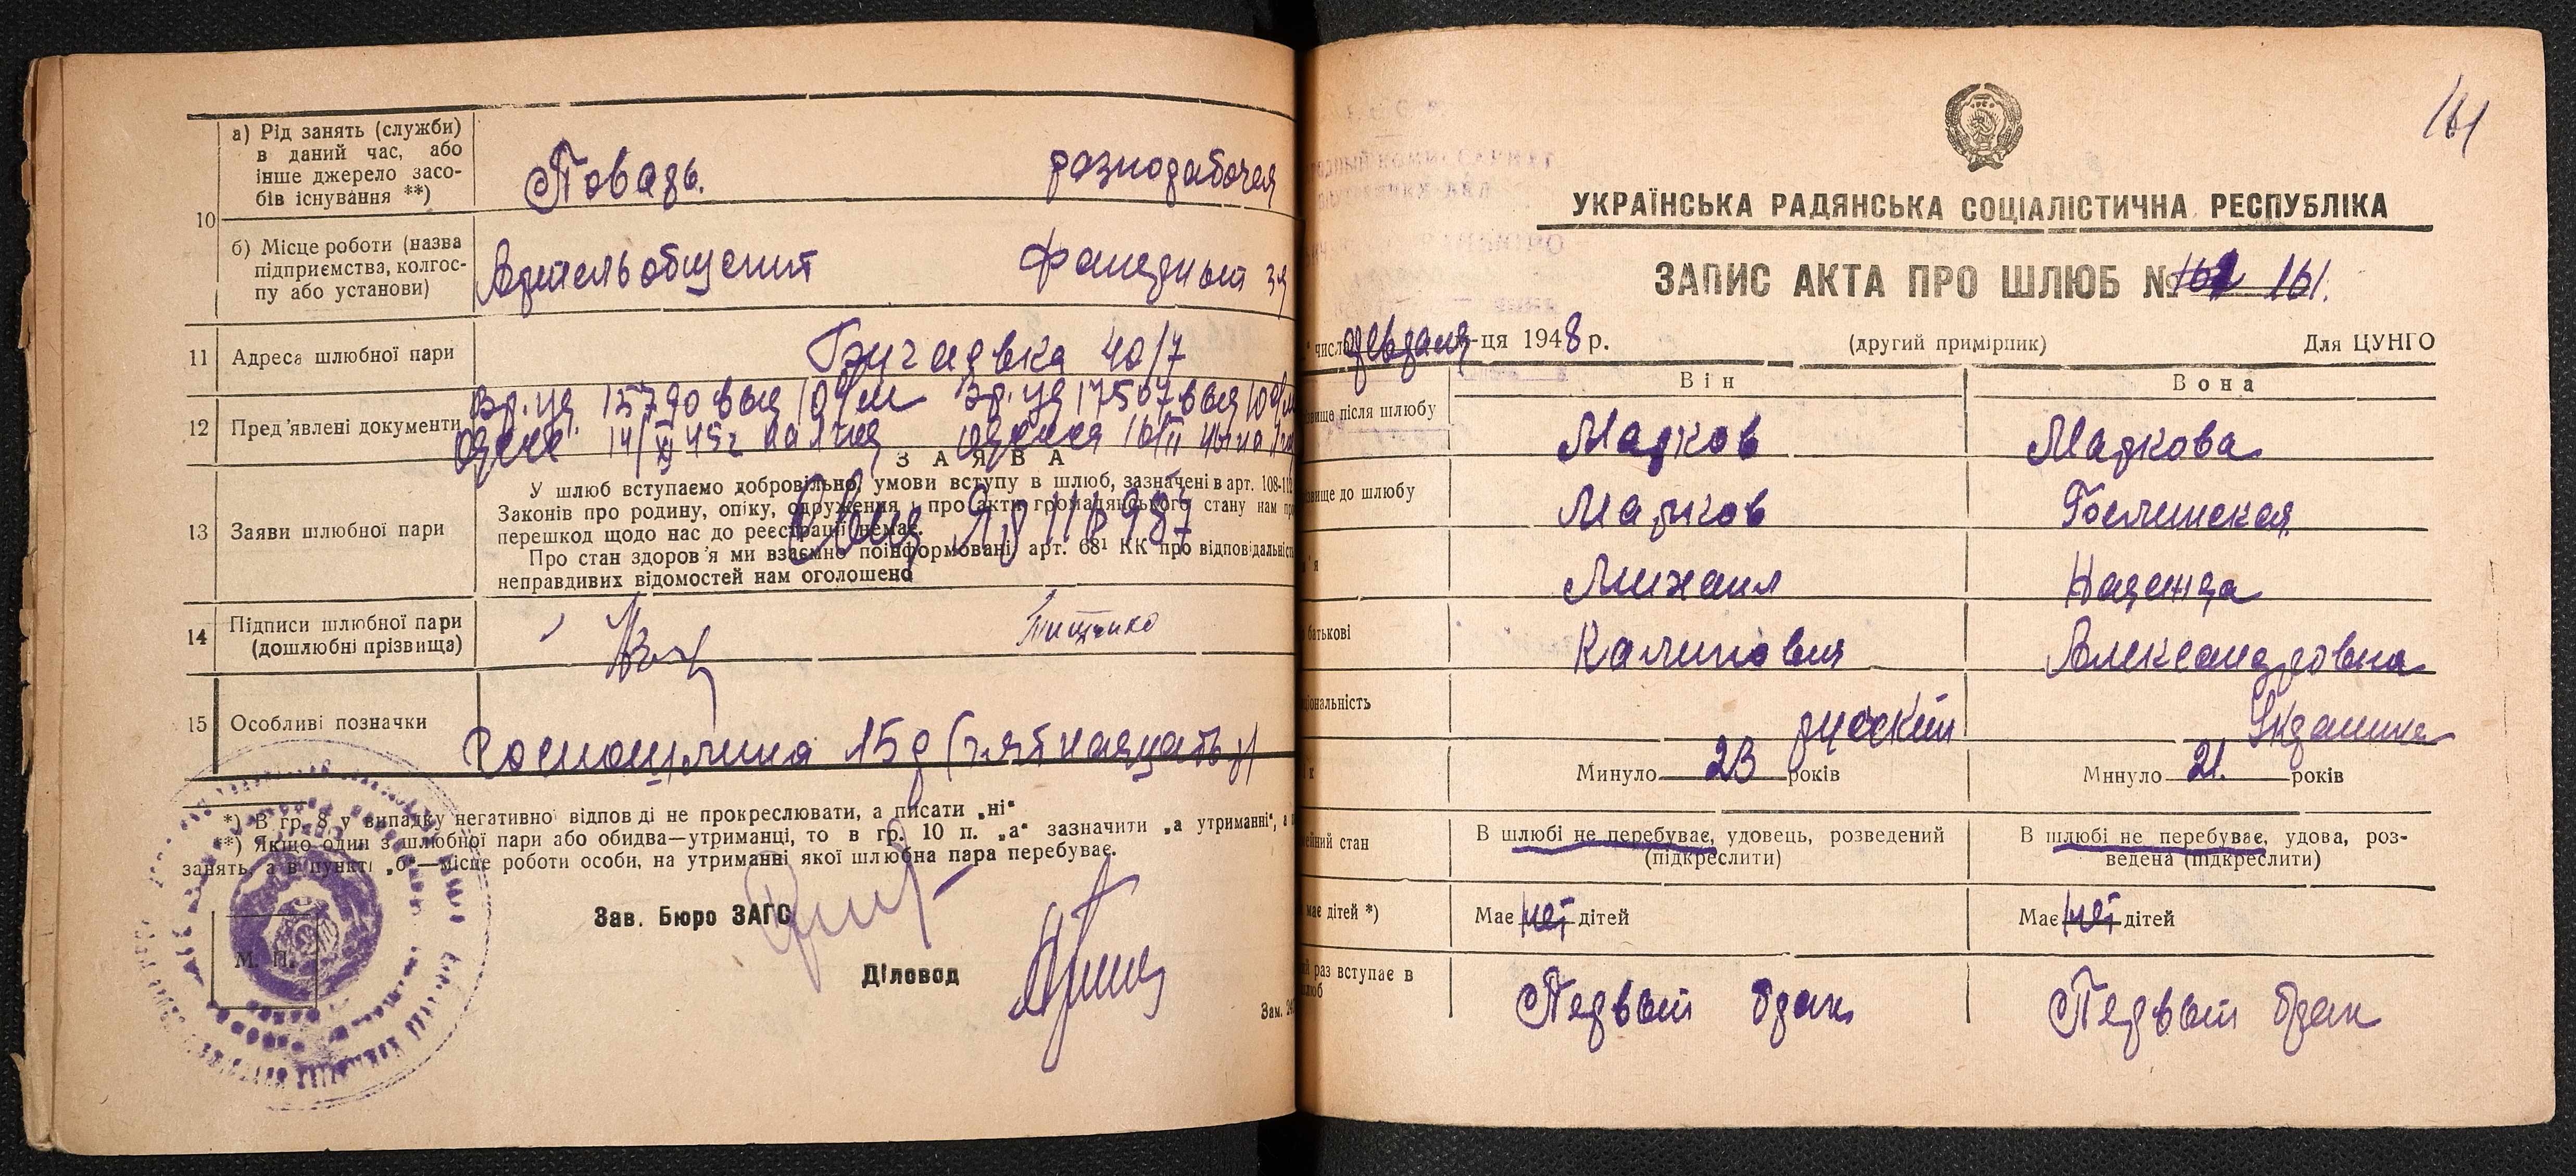 10
а) Рід занять (служби)
в даний час, або
інше джерело засо-
бів існування **)
Поварь.
разнорабочая
б) Місце роботи (назва
підприємства, колгос-
пу або установи)
Фанерный
11 Адреса шлюбної пари
40/7
12 Пред'явлені документи
Вр. уд 15790 выд 10 о/м Вр. уд 17507 выд 10 о/м
14/XI 45г
ЗАЯВА
13 Заяви шлюбної пари
У шлюб вступаємо добровільно, умови вступу в шлюб, зазначені в арт. 108-112
Законів про родину, опіку, одруження і про акти громадянського стану нам
перешкод щодо нас до реєстрації немає.
Про стан здоров'я ми взаємно поінформовані, арт. 68¹ КК про відповідальність
неправдивих відомостей нам оголошено
14 Підписи шлюбної пари
(дошлюбні прізвища)
15 Особливі позначки
Госпошлина 15 р (пятнадцать р)
*) В гр. 8 у випадку негативної відповіді не прокреслювати, а писати „ні“
**) Якщо один з шлюбної пари або обидва—утриманці, то в гр. 10 п. „а“ зазначити „а утриманні“, а
занять, а в пункті „б“—місце роботи особи, на утриманні якої шлюбна пара перебуває.
М. П.
Зав. Бюро ЗАГС
Діловод
Зам.
161
УКРАЇНСЬКА РАДЯНСЬКА СОЦІАЛІСТИЧНА РЕСПУБЛІКА
ЗАПИС АКТА ПРО ШЛЮБ № 161.
числа февраля -ця 1948 р. (другий примірник) Для ЦУНГО
Він Вона
після шлюбу Марков Маркова
до шлюбу Марков
Михаил Надежда
батькові Калинович Александровна
русский Украинка
Минуло 23 років Минуло 21. років
стан В шлюбі не перебуває, удовець, розведений В шлюбі не перебуває, удова, роз-
(підкреслити) ведена (підкреслити)
має дітей *) Має нет дітей Має нет дітей
раз вступає в
Первый брак Первый брак